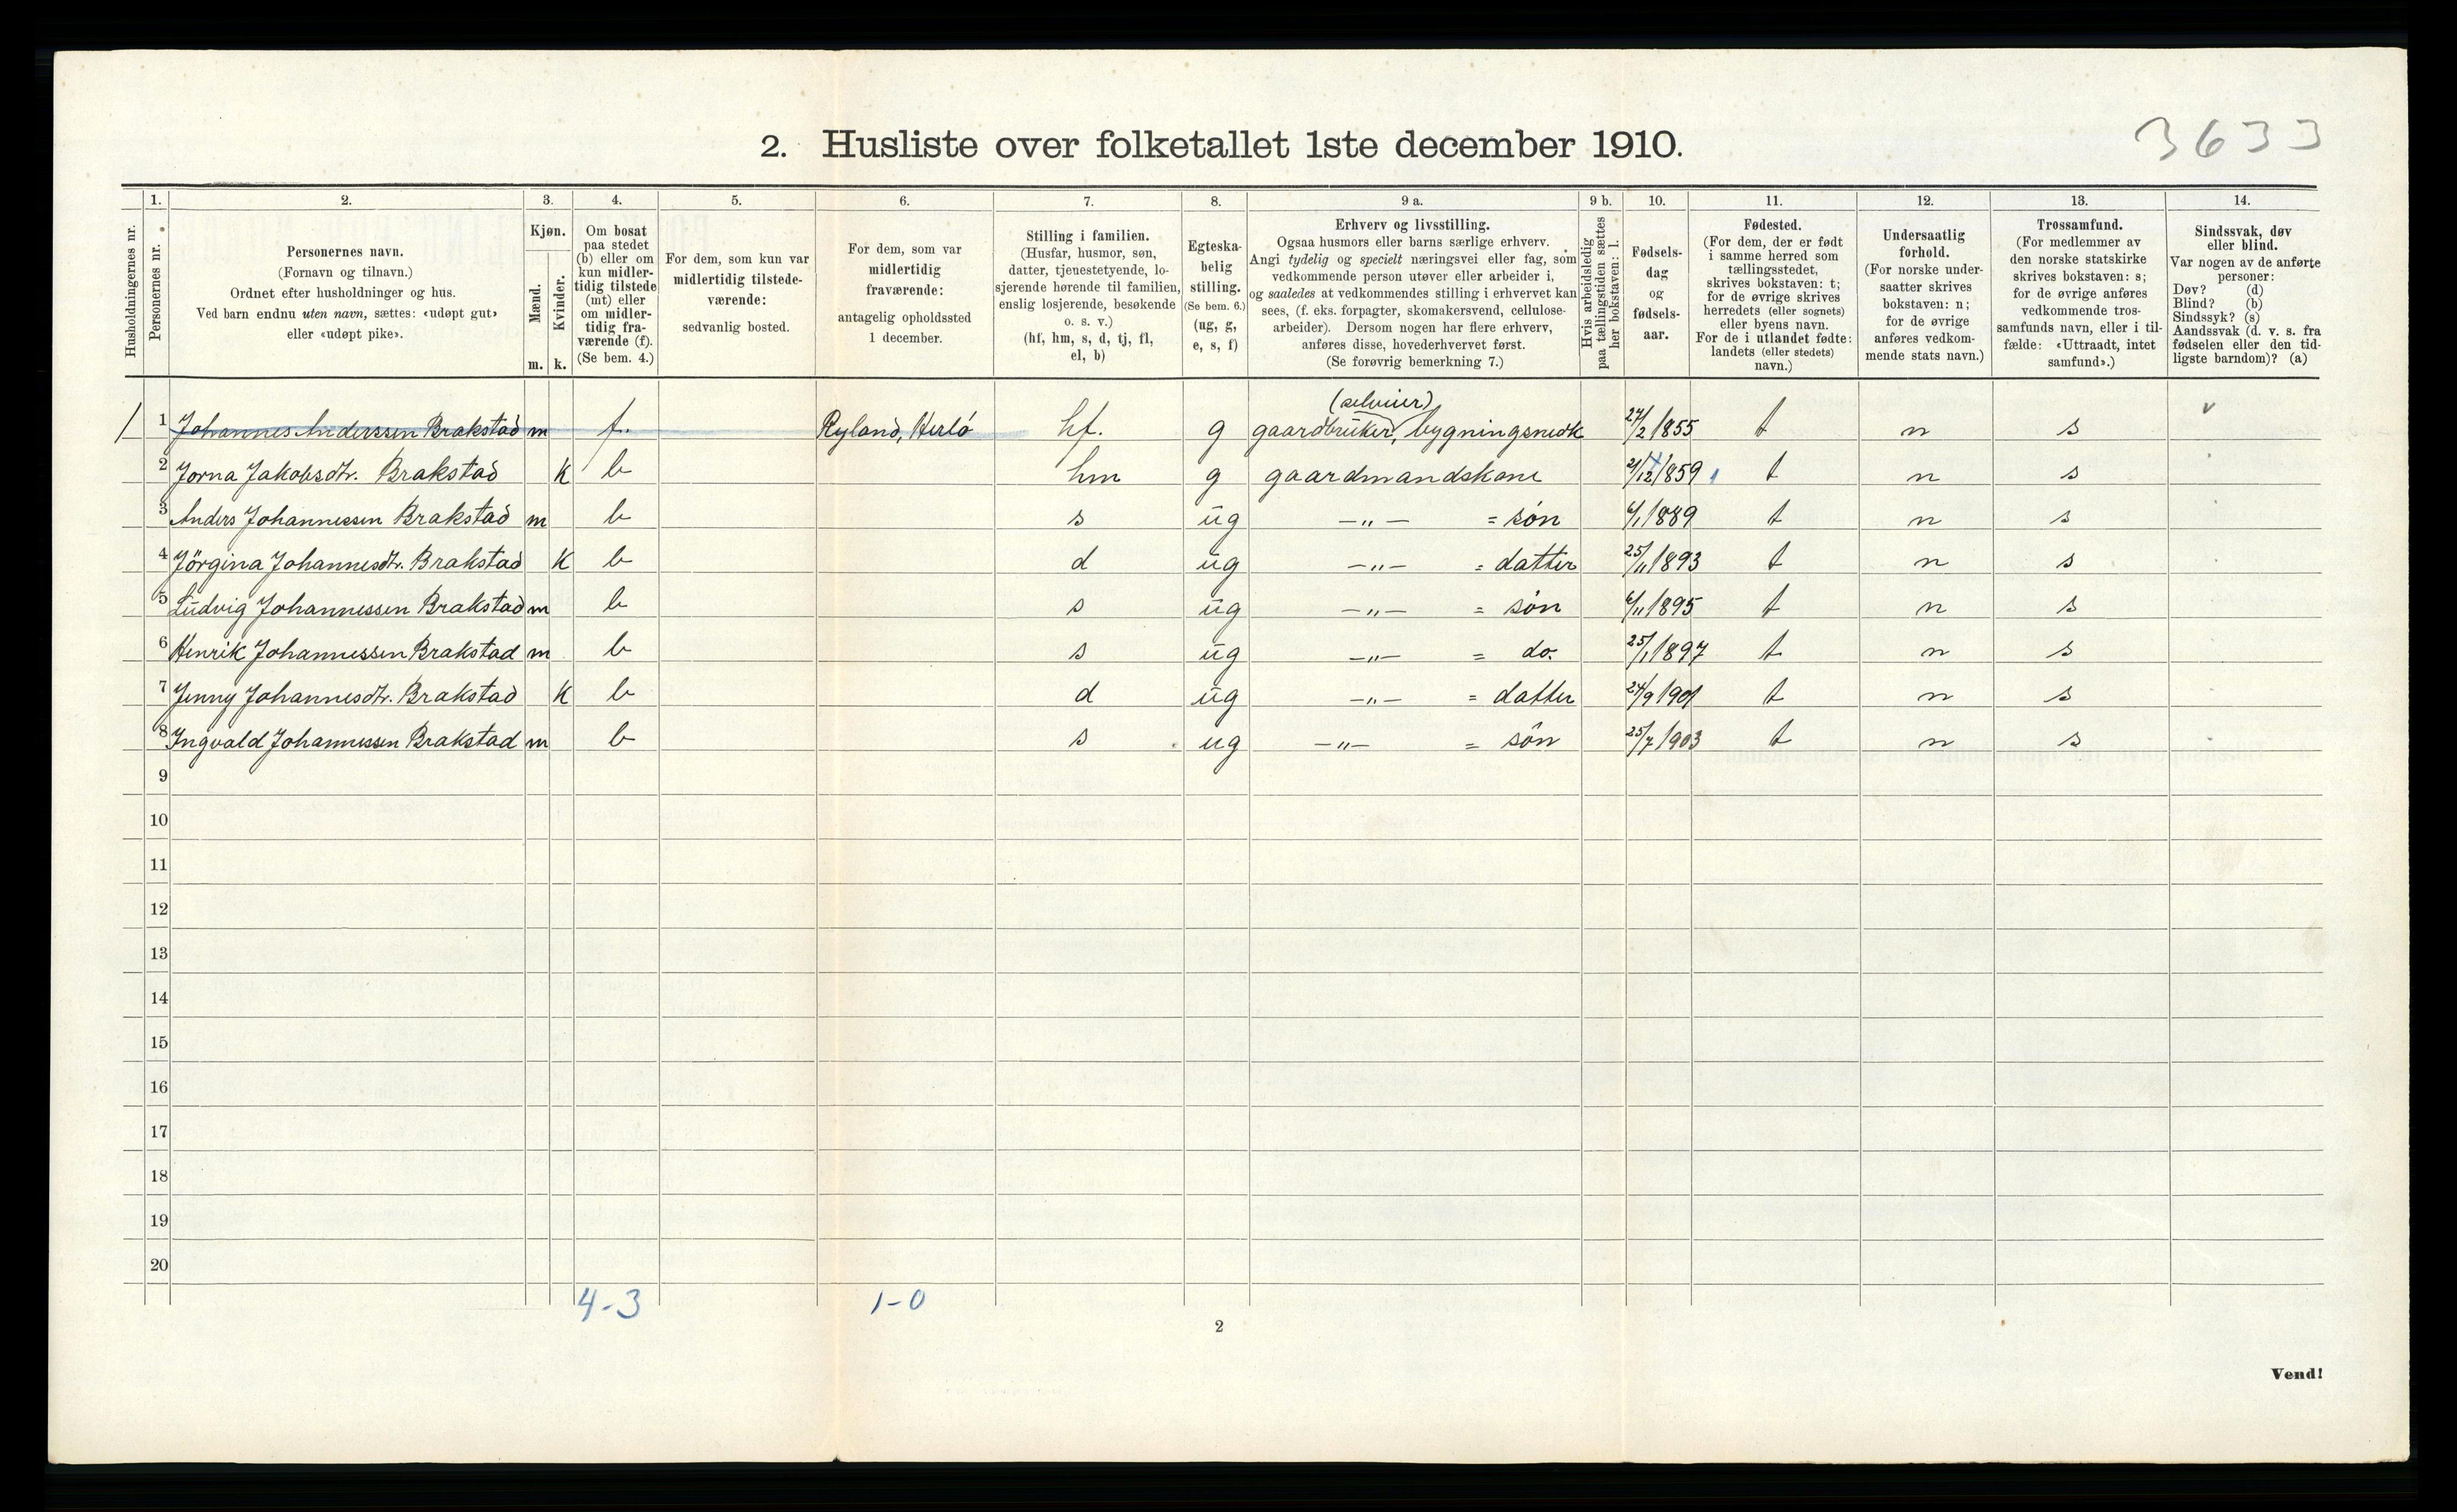 3633
2. Husliste over folketallet 1ste december 1910.
Husholdningernes nr.
1. Personernes nr.
2.
Personernes navn.
(Fornavn og tilnavn.)
Ordnet efter husholdninger og hus.
Ved barn endnu uten navn, sættes: «udøpt gut»
eller «udøpt pike».
3.
Kjøn.
Mænd.
m.
Kvinder.
k.
4.
Om bosat
paa stedet
(b) eller om
kun midler-
tidig tilstede
(mt) eller
om midler-
tidig fra-
værende (f).
(Se bem. 4.)
5.
For dem, som kun var
midlertidig tilstede-
værende:
sedvanlig bosted.
6.
For dem, som var
midlertidig
fraværende:
antagelig opholdssted
1 december.
7.
Stilling i familien.
(Husfar, husmor, søn,
datter, tjenestetyende, lo-
sjerende hørende til familien,
enslig losjerende, besøkende
o. s. v.)
(hf, hm, s, d, tj, fl,
el, b)
8.
Egteska-
belig
stilling.
(Se bem. 6.)
(ug, g,
e, s, f)
9 a.
Erhverv og livsstilling.
Ogsaa husmors eller barns særlige erhverv.
Angi tydelig og specielt næringsvei eller fag, som
vedkommende person utøver eller arbeider i,
og saaledes at vedkommendes stilling i erhvervet kan
sees, (f. eks. forpagter, skomakersvend, cellulose-
arbeider). Dersom nogen har flere erhverv,
anføres disse, hovederhvervet først.
(Se forøvrig bemerkning 7.)
9 b.
Hvis arbeidsledig
paa tællingstiden sættes
her bokstaven: l.
10.
Fødsels-
dag
og
fødsels-
aar.
11.
Fødested.
(For dem, der er født
i samme herred som
tællingsstedet,
skrives bokstaven: t;
for de øvrige skrives
herredets (eller sognets)
eller byens navn.
For de i utlandet fødte:
landets (eller stedets)
navn.)
12.
Undersaatlig
forhold.
(For norske under-
saatter skrives
bokstaven: n;
for de øvrige
anføres vedkom-
mende stats navn.)
13.
Trossamfund.
(For medlemmer av
den norske statskirke
skrives bokstaven: s;
for de øvrige anføres
vedkommende tros-
samfunds navn, eller i til-
fælde: «Uttraadt, intet
samfund».)
14.
Sindssvak, døv
eller blind.
Var nogen av de anførte
personer:
Døv? (d)
Blind? (b)
Sindssyk? (s)
Aandssvak (d. v. s. fra
fødselen eller den tid-
ligste barndom)? (a)
(selveier)
1 Johannes Anderssen Brakstad m f. Ryland, Herlö hf. g gaardbruker, bygningsnedk 27/2 1855 t n s v
2 Jorna Jakobsdtr. Brakstad K b hm g gaardmandskone 1859 t n s
3 Anders Johannessen Brakstad m b s ug —"— = søn 6/1 1889 t n s
4 Jörgina Johannesdtr. Brakstad K b d ug —"— = datter 25/11 1893 t n s
5 Ludvig Johannessen Brakstad m b s ug —"— = søn 6/11 1895 t n s
6 Henrik Johannessen Brakstad m b s ug —"— = do. 25/1 1897 t n s
7 Jenny Johannesdtr. Brakstad K b d ug —"— = datter 24/9 1901 t n s
8 Ingvald Johannessen Brakstad m b s ug —"— = søn 25/7 1903 t n s
9
10
11
12
13
14
15
16
17
18
19
20
4-3 1-0
2
Vend!